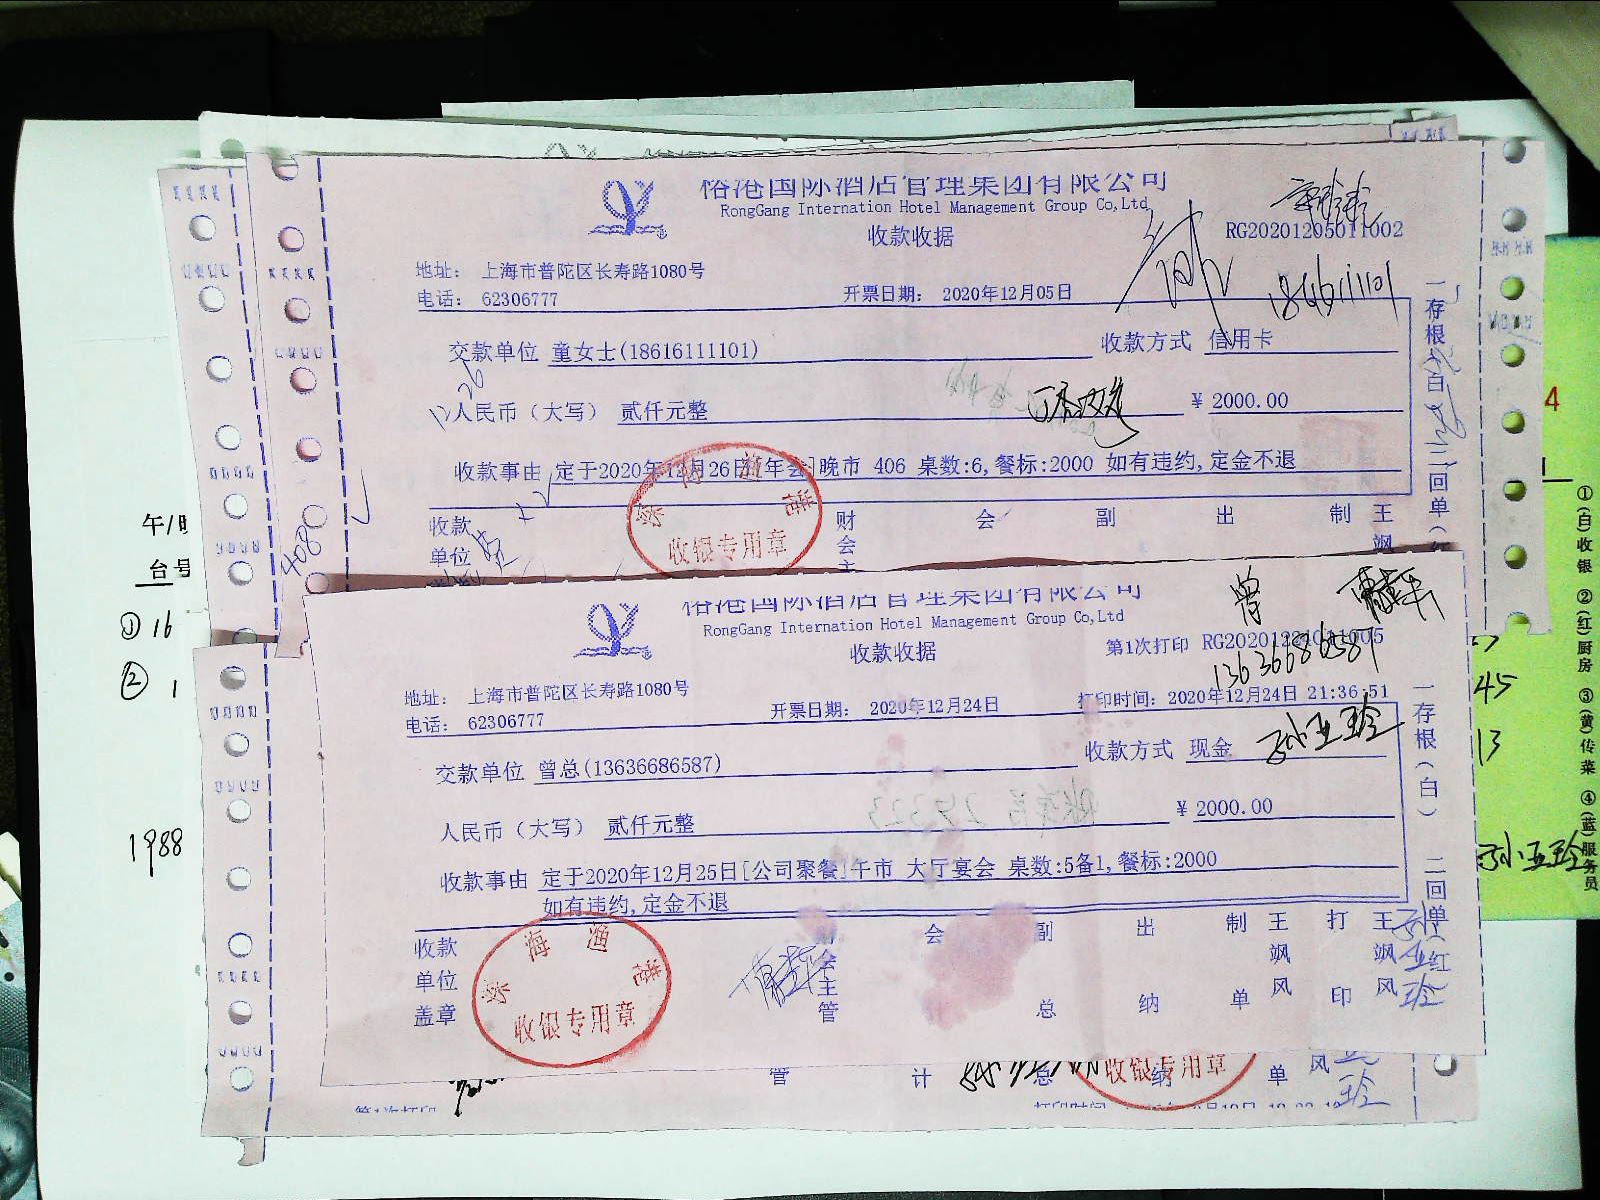 裕港国际酒店管理集团有限公司
RongGang Internation Hotel Management Group Co,Ltd
收款收据
RG20201205011002
地址: 上海市普陀区长寿路1080号
电话: 62306777
开票日期: 2020年12月05日
18616111101
交款单位 童女士(18616111101)
收款方式 信用卡
人民币（大写） 贰仟元整
¥ 2000.00
收款事由 定于2020年12月26日[年会]晚市 406 桌数:6,餐标:2000 如有违约,定金不退
收款
单位
财会主
会
副
出
制
王飒
收银专用章
408
一存根（白）
二回单（
裕港国际酒店管理集团有限公司
RongGang Internation Hotel Management Group Co,Ltd
收款收据
曾
第1次打印
13636686587
地址: 上海市普陀区长寿路1080号
电话: 62306777
开票日期: 2020年12月24日
打印时间: 2020年12月24日 21:36:51
交款单位 曾总(13636686587)
收款方式 现金
孙亚玲
人民币（大写） 贰仟元整
¥ 2000.00
收款事由 定于2020年12月25日[公司聚餐]午市 大厅宴会 桌数:5备1,餐标:2000
如有违约,定金不退
收款
单位
盖章
收银专用章
财会主管
会
副总
出纳
制单
王飒风
打印
王飒风
孙亚玲
一存根（白）
二回单（红
管
计
总
纳
单
风
收银专用章
玲
午/
台号
① 16
② 1
1988
4
45
13
孙亚玲
①(白)收银 ②(红)厨房 ③(黄)传菜 ④(蓝)服务员